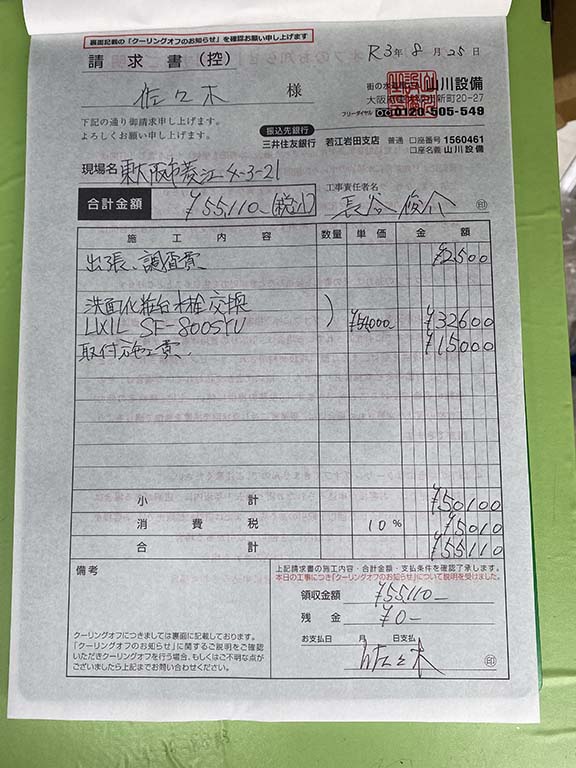 裏面記載の「クーリングオフのお知らせ」を確認お願い申し上げます
請求書(控)
R3年8月25日
佐々木 様
街の水
山川設備
大阪
新町20-27
フリーダイヤル 0120-505-549
下記の通り御請求申し上げます。
よろしくお願い申し上げます。
振込先銀行
三井住友銀行 若江岩田支店 普通 口座番号 1560461
口座名義 山川設備
現場名 東大阪市菱江4-3-21
工事責任者名
合計金額 ¥55,110- (税込)
長谷 俊介 印
施工内容 数量 単価 金額
出張、調査費 ¥2500
洗面化粧台水栓交換
LIXIL SF-800SYU 1 ¥32600
取付施工費 ¥15000
小計 ¥50100
消費税 10% ¥5010
合計 ¥55110
備考
上記請求書の施工内容・合計金額・支払条件を確認了承します。
本日の工事につき「クーリングオフのお知らせ」について説明を受けました。
領収金額 ¥55,110-
残金 ¥0-
お支払日 月 日支払
佐々木 印
クーリングオフにつきましては裏面に記載しております。
「クーリングオフのお知らせ」に関するご説明をご確認
いただきクーリングオフを行う場合、もしくはご不明な点が
ございましたら上記までお問い合わせください。